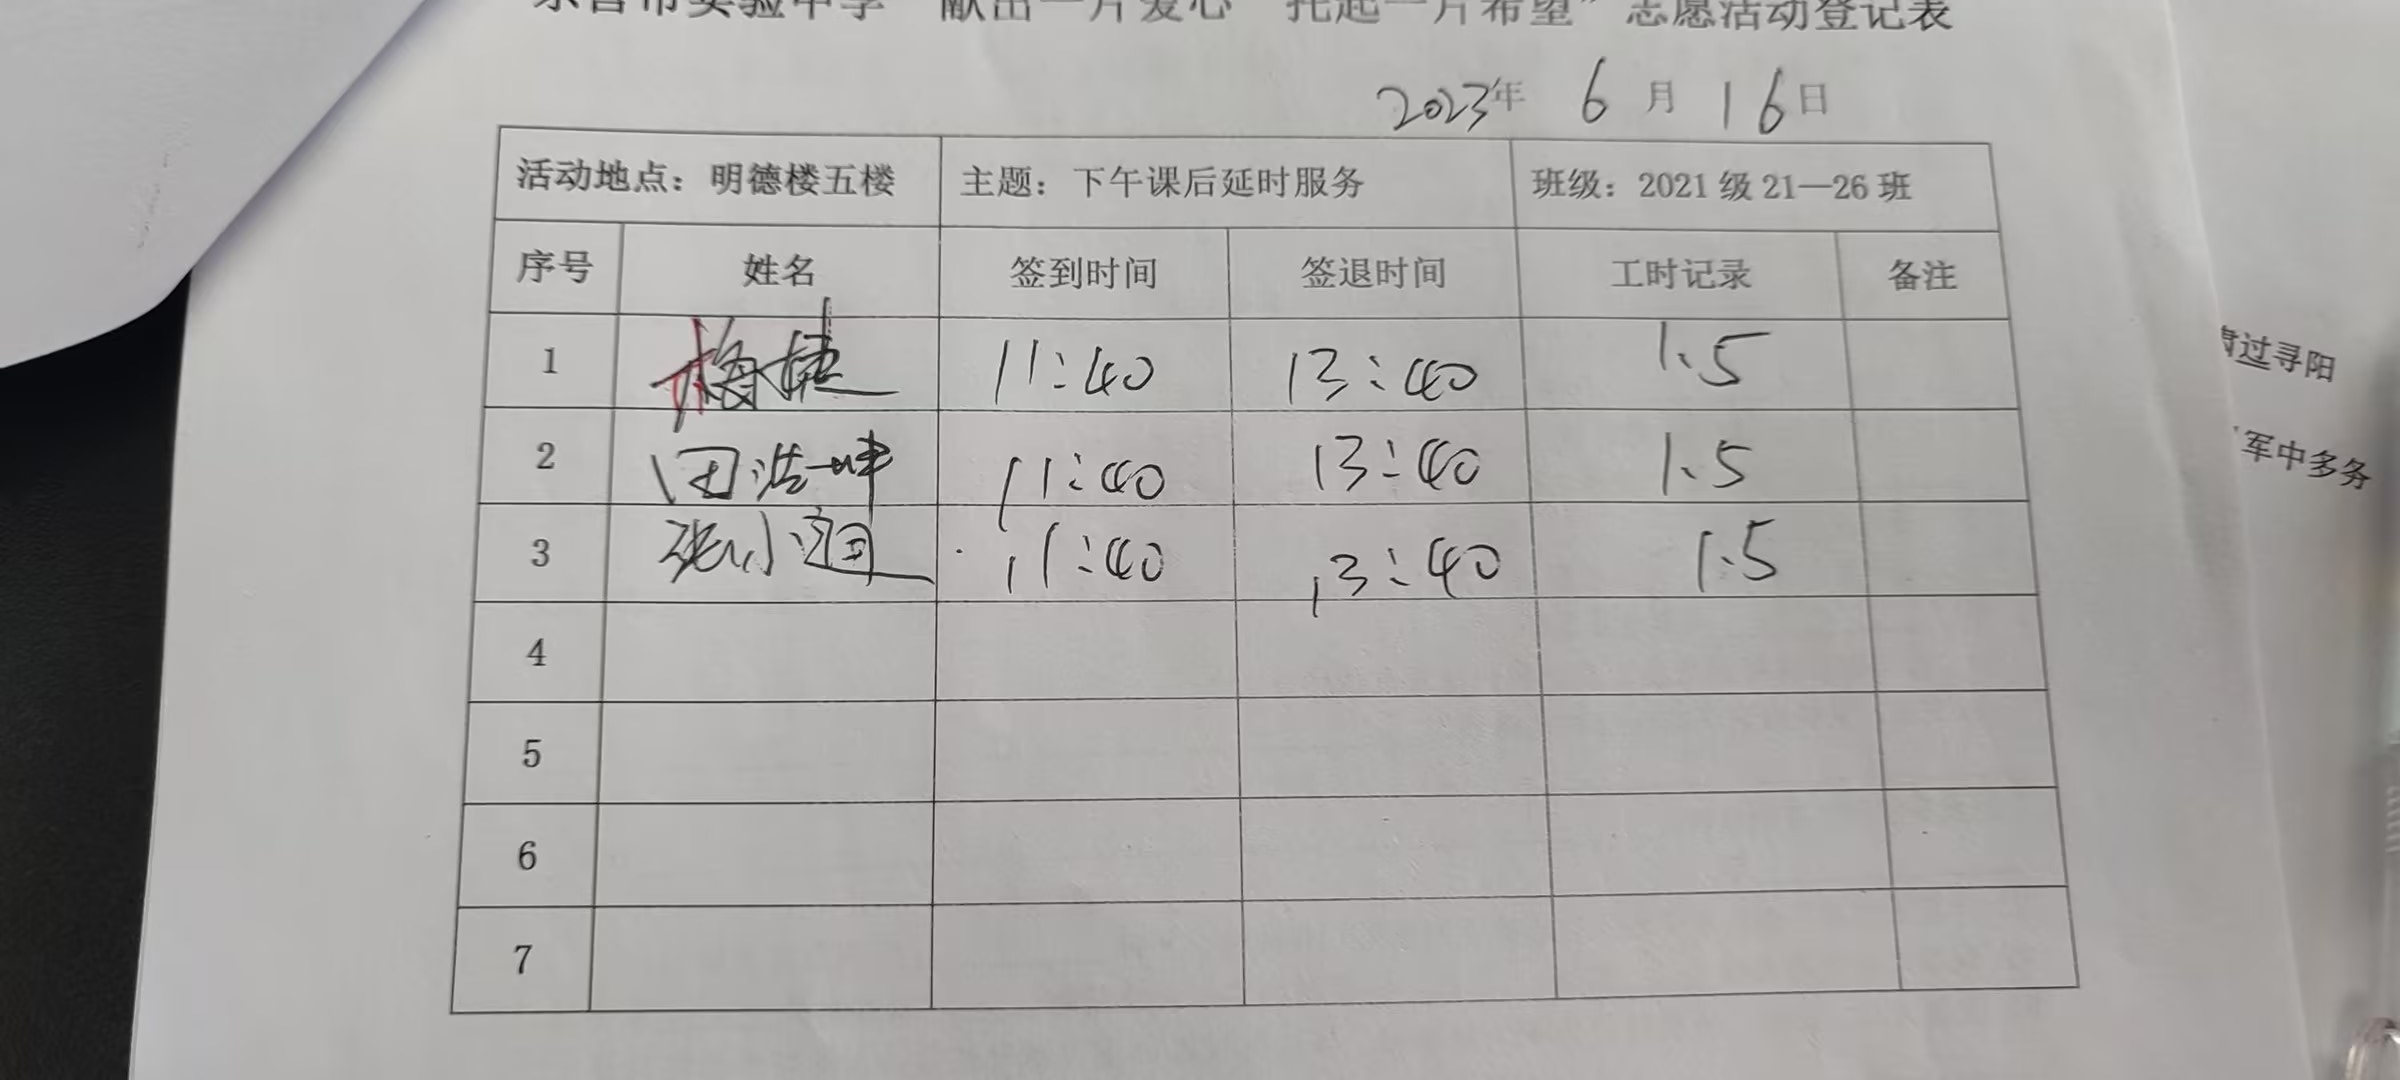 东营市实验中学“献出一片爱心 托起一片希望”志愿活动登记表
2023年 6 月 16日
活动地点：明德楼五楼 主题：下午课后延时服务 班级：2021级21—26班
序号 姓名 签到时间 签退时间 工时记录 备注
1 梅捷 11:40 13:40 1.5
2 田浩坤 11:40 13:40 1.5
3 张小 11:40 13:40 1.5
4
5
6
7
肃过寻阳
军中多务